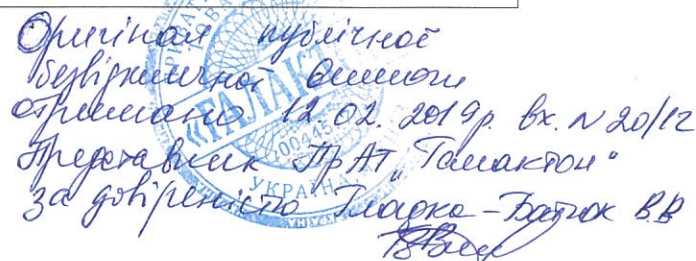 Оригінал публічної
безвідкличної вимоги
отримано 12.02.2019р. вх. N 20/12
Представник ПрАТ „Галактон"
за довіреністю Гладка-Батюк В.В
«ГАЛАКТ
00445
УКРАЇНА